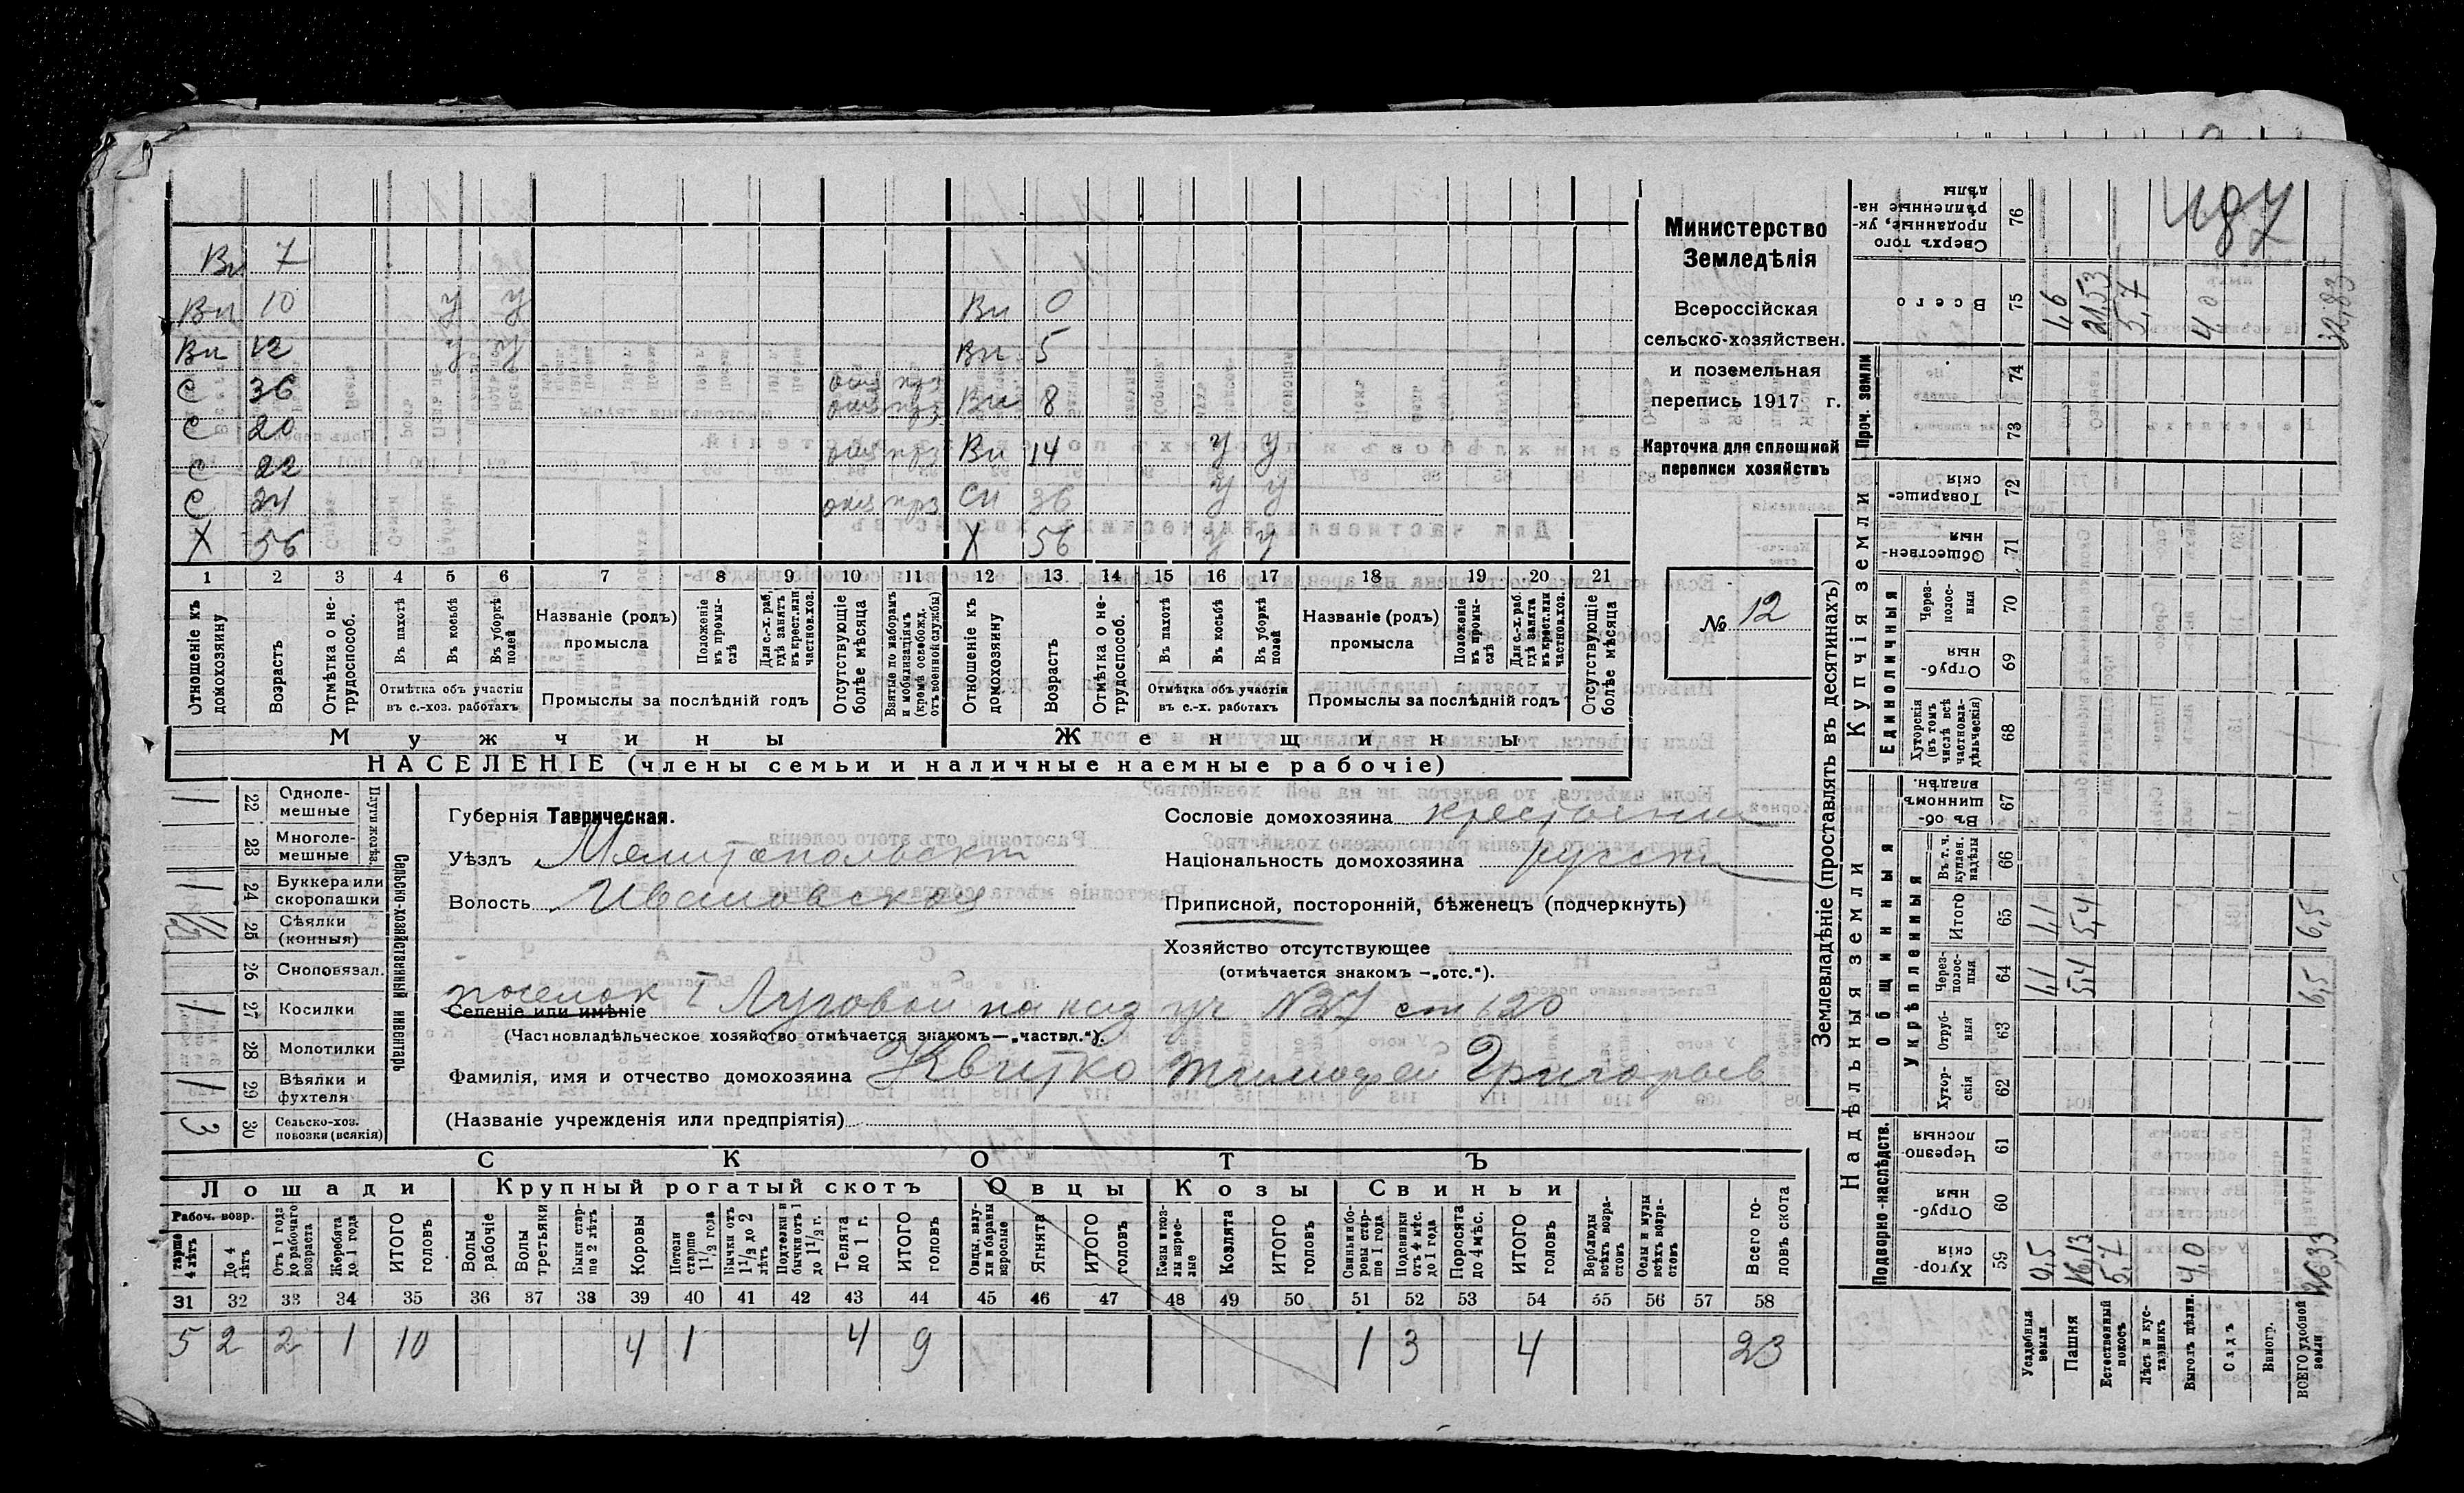 187
Вн 7
Вн 10 у у Вн 0
Вн 12 у у Вн 5
С 36 Вн 8
С 20
С 22 Вн 14 у у
С 24 Сн 36 у у
Х 56 Х 56 у у
1 2 3 4 5 6 7 8 9 10 11 12 13 14 15 16 17 18 19 20 21
Отношеніе къ домохозяину
Возрастъ
Отмѣтка о не-
трудоспособ.
Въ пахотѣ
Въ косьбѣ
Въ уборкѣ
полей
Отмѣтка объ участіи
въ с.-хоз. работахъ
Названіе (родъ)
промысла
Положеніе
въ промы-
слѣ
Для с.-х. раб.
гдѣ занятъ
въ крест. или
частнов. хоз.
Промыслы за послѣдній годъ
Отсутствующіе
болѣе мѣсяца
Взятые по наборамъ
и мобилизаціямъ
(кромѣ освобожд.
отъ военной службы)
Отношеніе къ
домохозяину
Возрастъ
Отмѣтка о не-
трудоспособ.
Въ пахотѣ
Въ косьбѣ
Въ уборкѣ
полей
Отмѣтка объ участіи
въ с.-х. работахъ
Названіе (родъ)
промысла
Положеніе
въ промы-
слѣ
Для с.-х. раб.
гдѣ занята
въ крест. или
частнов. хоз.
Промыслы за послѣдній годъ
Отсутствующіе
болѣе мѣсяца
Мужчины
Женщины
НАСЕЛЕНІЕ (члены семьи и наличные наемные рабочіе)
Министерство
Земледѣлія
Всероссійская
сельско-хозяйствен.
и поземельная
перепись 1917 г.
Карточка для сплошной
переписи хозяйствъ
№ 12
Сельско-хозяйственный инвентарь
1 22 Однолe-
мешные
23 Многоле-
мешные
1 24 Буккера или
скоропашки
25 Сѣялки
(конныя)
26 Сноповязал.
1 27 Косилки
28 Молотилки
1 29 Вѣялки и
фухтеля
3 30 Сельско-хоз.
повозки (всякія)
Губернія Таврическая.
Уѣздъ Мелитопольскій
Волость Ивановская
поселок I Луговой на каз уч №37 ст 120
Селеніе или имѣніе
(Частновладѣльческое хозяйство отмѣчается знакомъ—„частвл.“).
Фамилія, имя и отчество домохозяина Квитко Тимофей Григорьев
(Названіе учрежденія или предпріятія)
Сословіе домохозяина крестьянин
Національность домохозяина русский
Приписной, посторонній, бѣженецъ (подчеркнуть)
Хозяйство отсутствующее
(отмѣчается знакомъ —„отс.“).
СКОТЪ
Лошади
Крупный рогатый скотъ
Овцы
Козы
Свиньи
Рабоч. возр.
старше
4 лѣтъ
До 4
лѣтъ
Отъ 1 года
до рабочаго
возраста
Жеребята
до 1 года
ИТОГО
головъ
Волы
рабочіе
Волы
третьяки
Быки стар-
ше 2 лѣтъ
Коровы
Нетели
старше
1½ года
Бычки отъ
1½ до 2
лѣтъ
Подтелки и
бычки отъ 1
до 1½ г.
Телята
до 1 г.
ИТОГО
головъ
Овцы, валу-
хи и бараны
взрослые
Ягнята
ИТОГО
головъ
Козы и коз-
лы взрос-
лые
Козлята
ИТОГО
головъ
Свиньи и бо-
ровы стар-
ше 1 года
Подсвинки
отъ 4 мѣс.
до 1 года
Поросята
до 4 мѣс.
ИТОГО
головъ
Верблюды
всѣхъ возра-
стовъ
Ослы и мулы
всѣхъ возра-
стовъ
Всего го-
ловъ скота
31 32 33 34 35 36 37 38 39 40 41 42 43 44 45 46 47 48 49 50 51 52 53 54 55 56 57 58
5 2 2 1 10 4 1 4 9 1 3 4 23
Землевладѣніе (проставлять въ десятинахъ)
Надѣльныя земли
Купчія земли
Проч. земли
Подворно-наслѣдств.
Общинныя
Укрѣпленныя
Единоличныя
Сверхъ того
проданные, ук-
рѣпленные на-
дѣлы 76
Всего 75 1,6 21,53 5,7 4,0 32,83
74
73
Товарище-
скія 72
Обществен-
ныя 71
Через-
полос-
ныя 70
Отруб-
ныя 69
Хуторскія
(въ томъ
числѣ всѣ
частновла-
дѣльческія) 68
Въ об-
щинномъ
владѣн. 67
Въ т. ч.
куплен.
надѣлы 66
Итого 65 1,1 5,4 6,5
Через-
полос-
ныя 64 1,1 5,4 6,5
Отруб-
ныя 63
Хутор-
скія 62
Черезпо-
лосныя 61
Отруб-
ныя 60
Хутор-
скія 59 0,5 16,13 5,7 4,0 26,33
Усадебныя
земли
Пашня
Естественный
покосъ
Лѣсъ и кус-
тарникъ
Выгонъ цѣлин.
Садъ
Виногр.
ВСЕГО удобной
земли